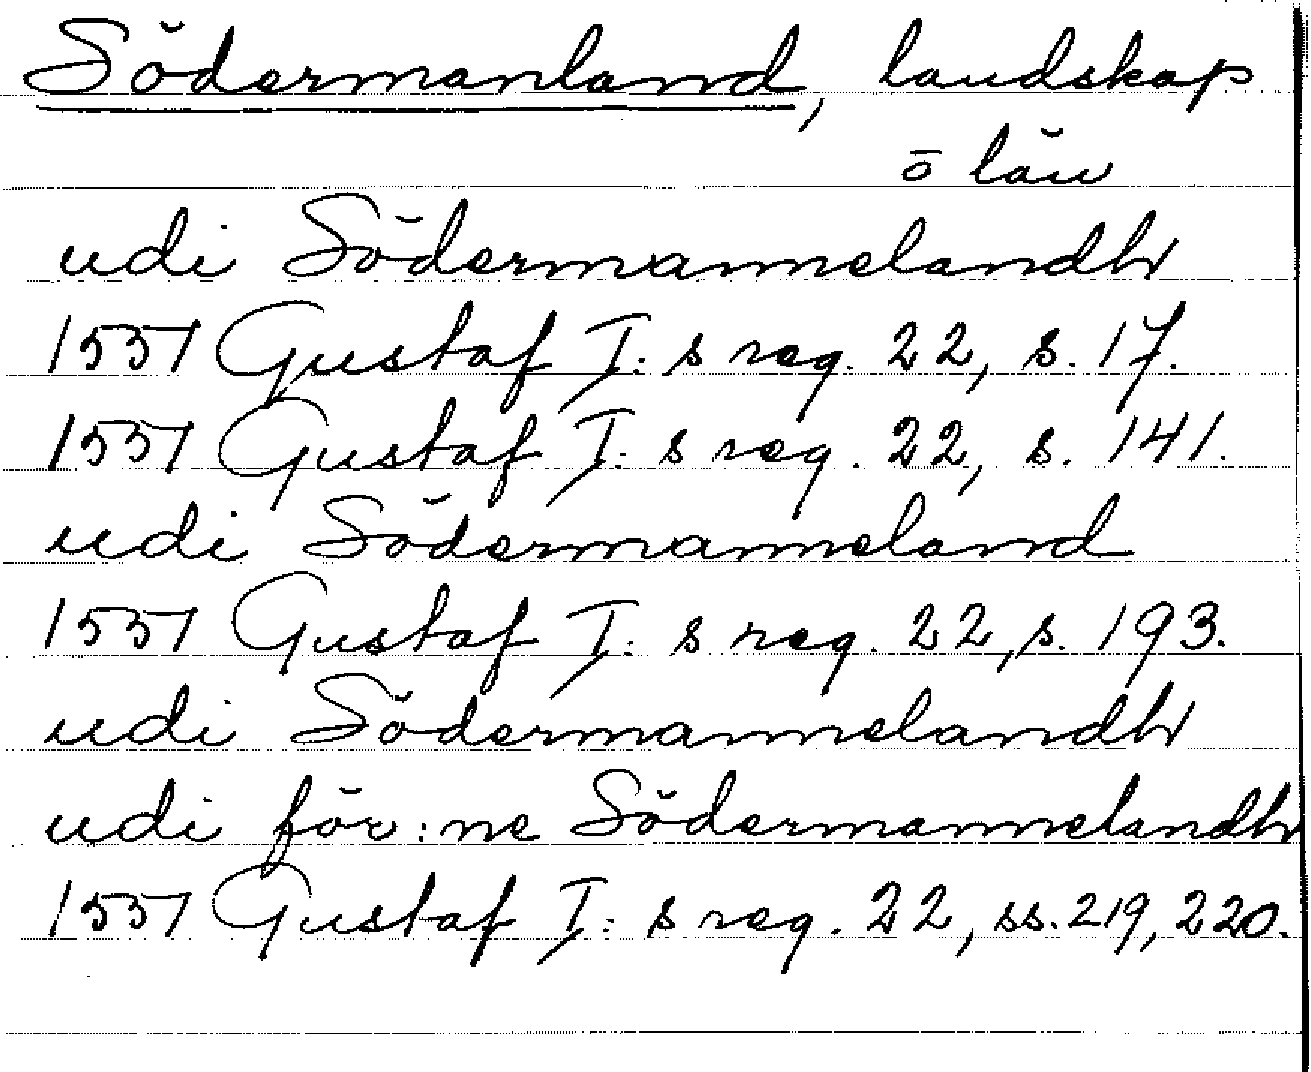 Södermanland, landskap
o län
udi Södermannelandh
1551 Gustaf I: s reg. 22, s. 17.
1551 Gustaf I: s reg. 22, s. 141.
udi Södermanneland
1551 Gustaf I: s reg. 22, s. 193.
udi Södermannelandh
udi för:ne Södermannelandh
1551 Gustaf I: s reg. 22, ss. 219, 220.